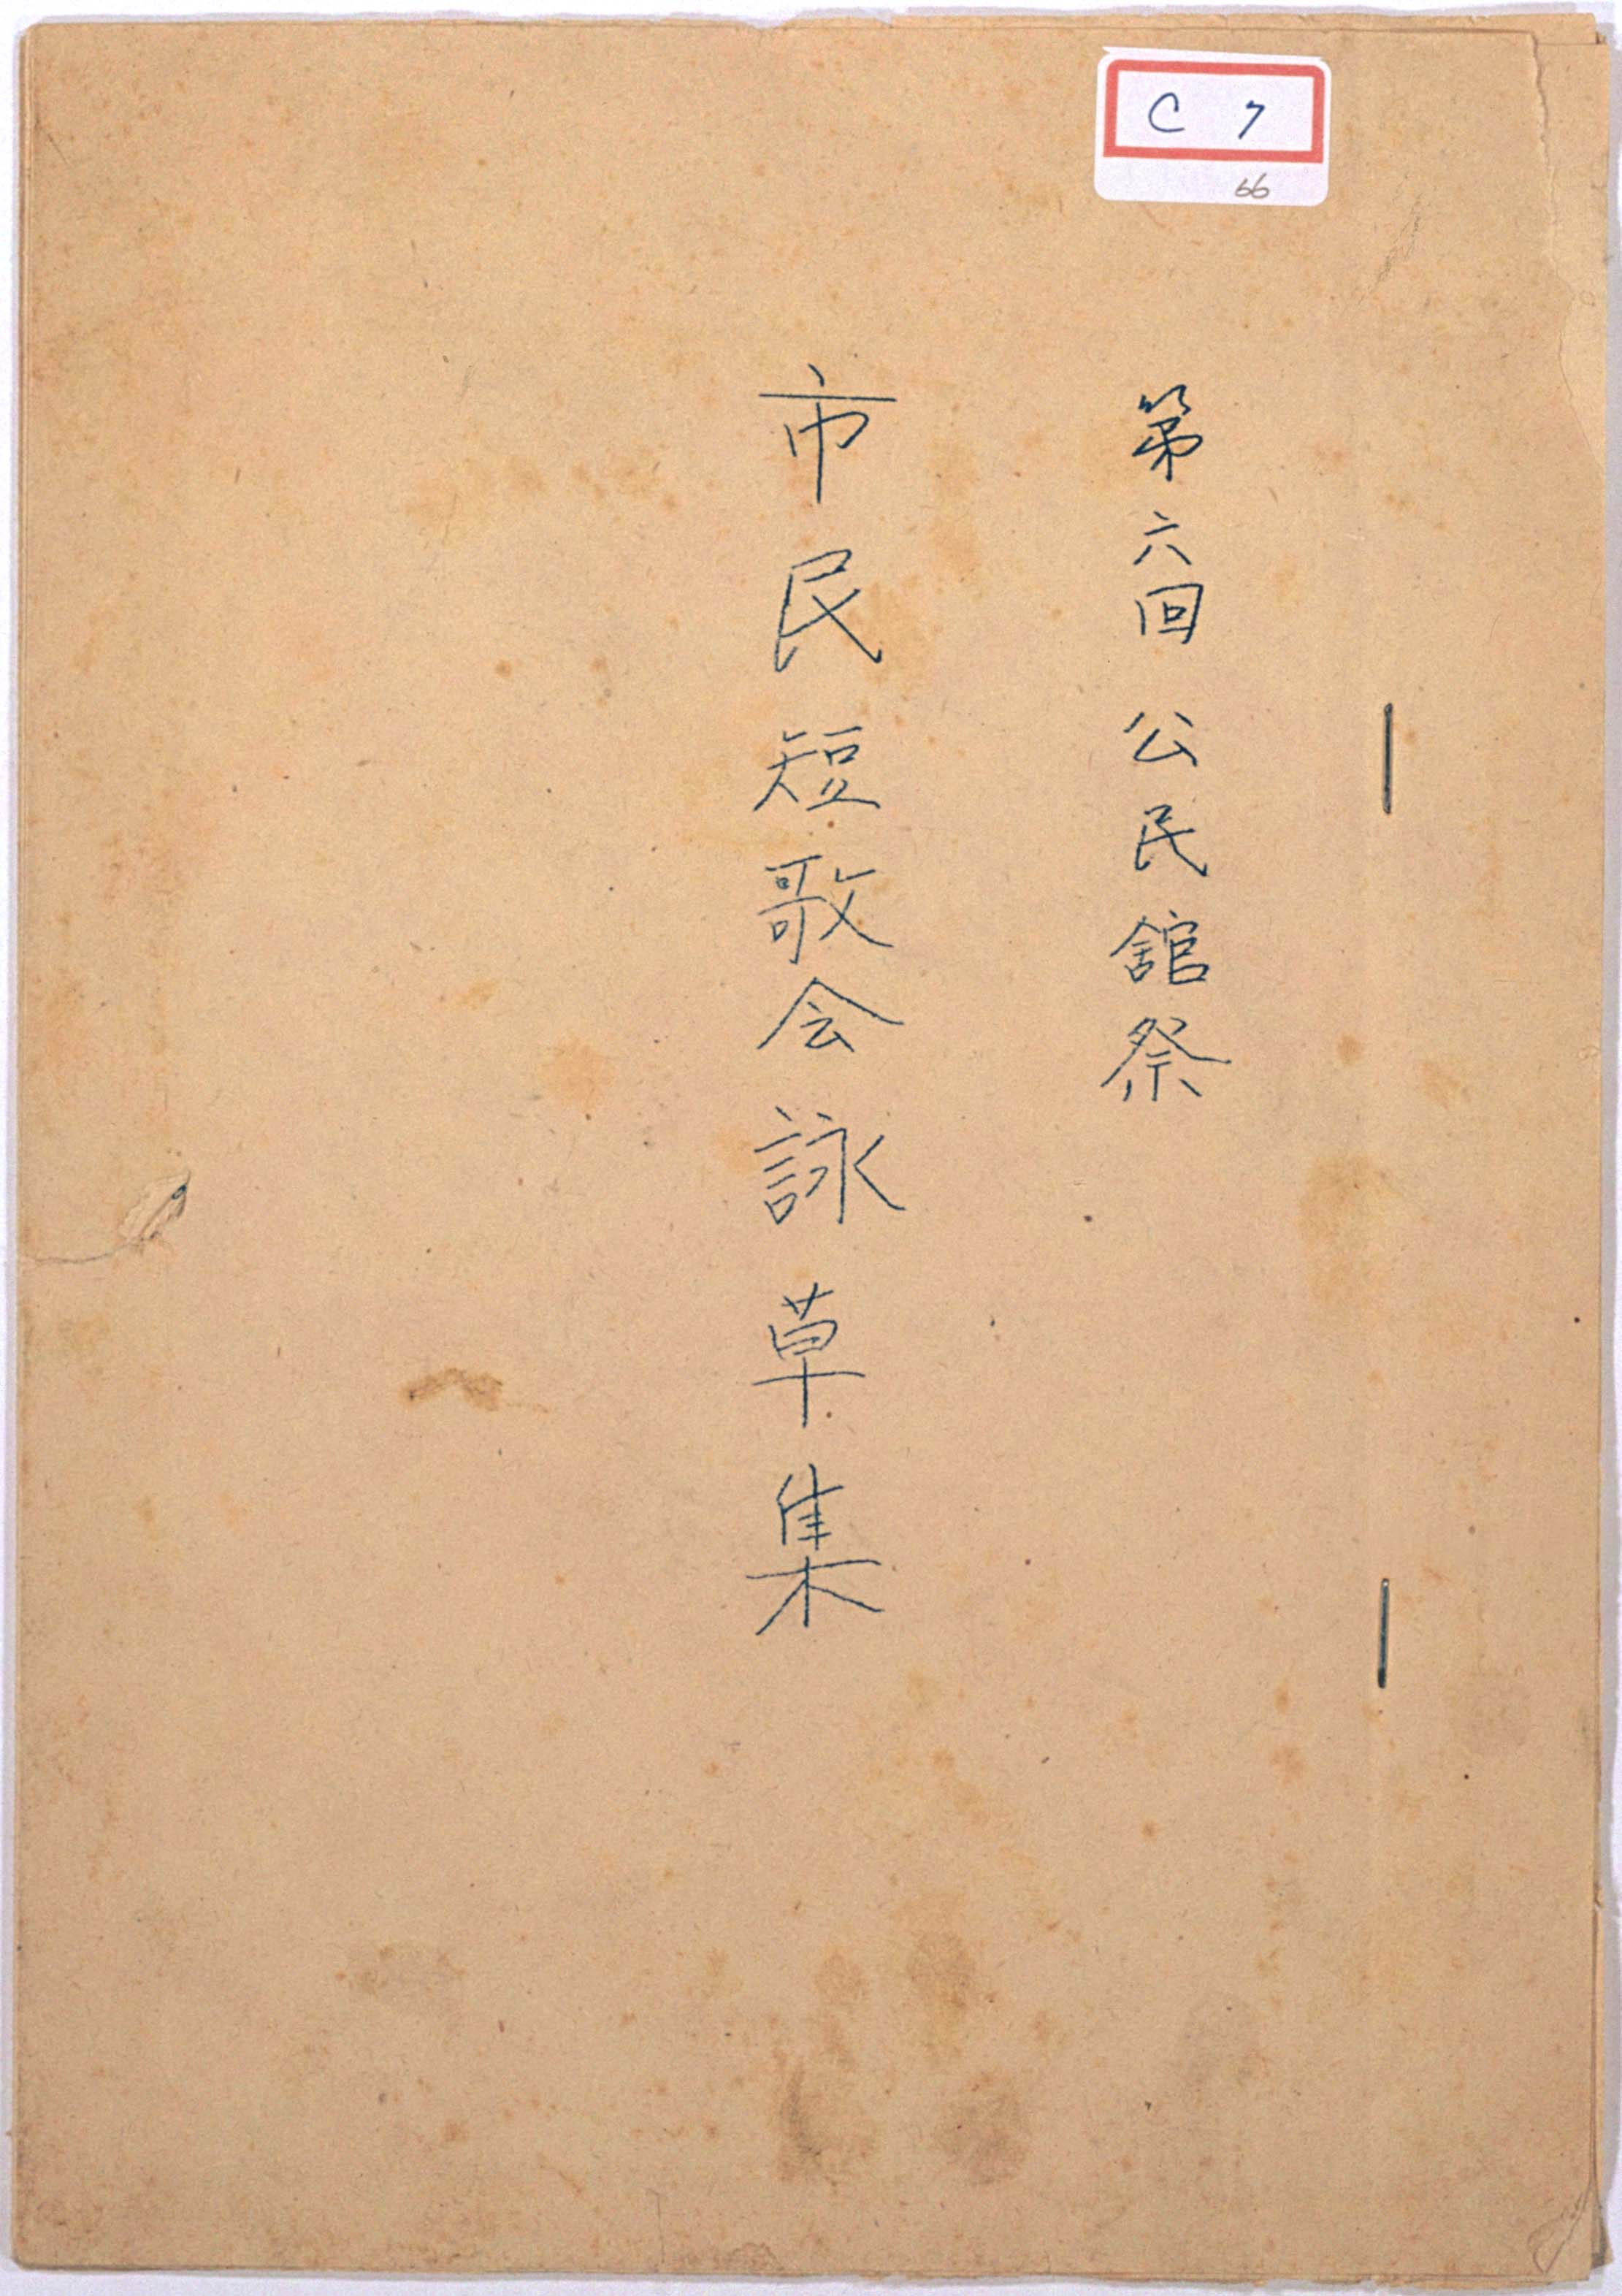 C 7
66
第六回公民舘祭
市民短歌会詠草集